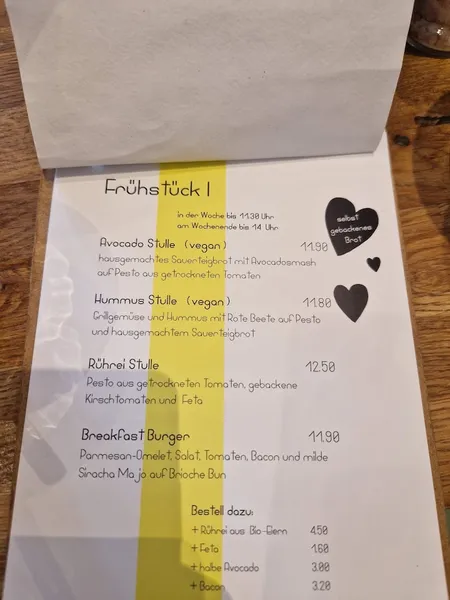 Frühstück I
in der Woche bis 11.30 Uhr
am Wochenende bis 14 Uhr
selbst
gebackenes
Brot
Avocado Stulle (vegan) 11.90
hausgemachtes Sauerteigbrot mit Avocadosmash
auf Pesto aus getrockneten Tomaten
Hummus Stulle (vegan) 11.80
Grillgemüse und Hummus mit Rote Beete auf Pesto
und hausgemachtem Sauerteigbrot
Rührei Stulle 12.50
Pesto aus getrockneten Tomaten, gebackene
Kirschtomaten und Feta
Breakfast Burger 11.90
Parmesan-Omelet, Salat, Tomaten, Bacon und milde
Siracha Majo auf Brioche Bun
Bestell dazu:
+ Rührei aus Bio-Eiern 4.50
+ Feta 1.60
+ halbe Avocado 3.00
+ Bacon 3.20